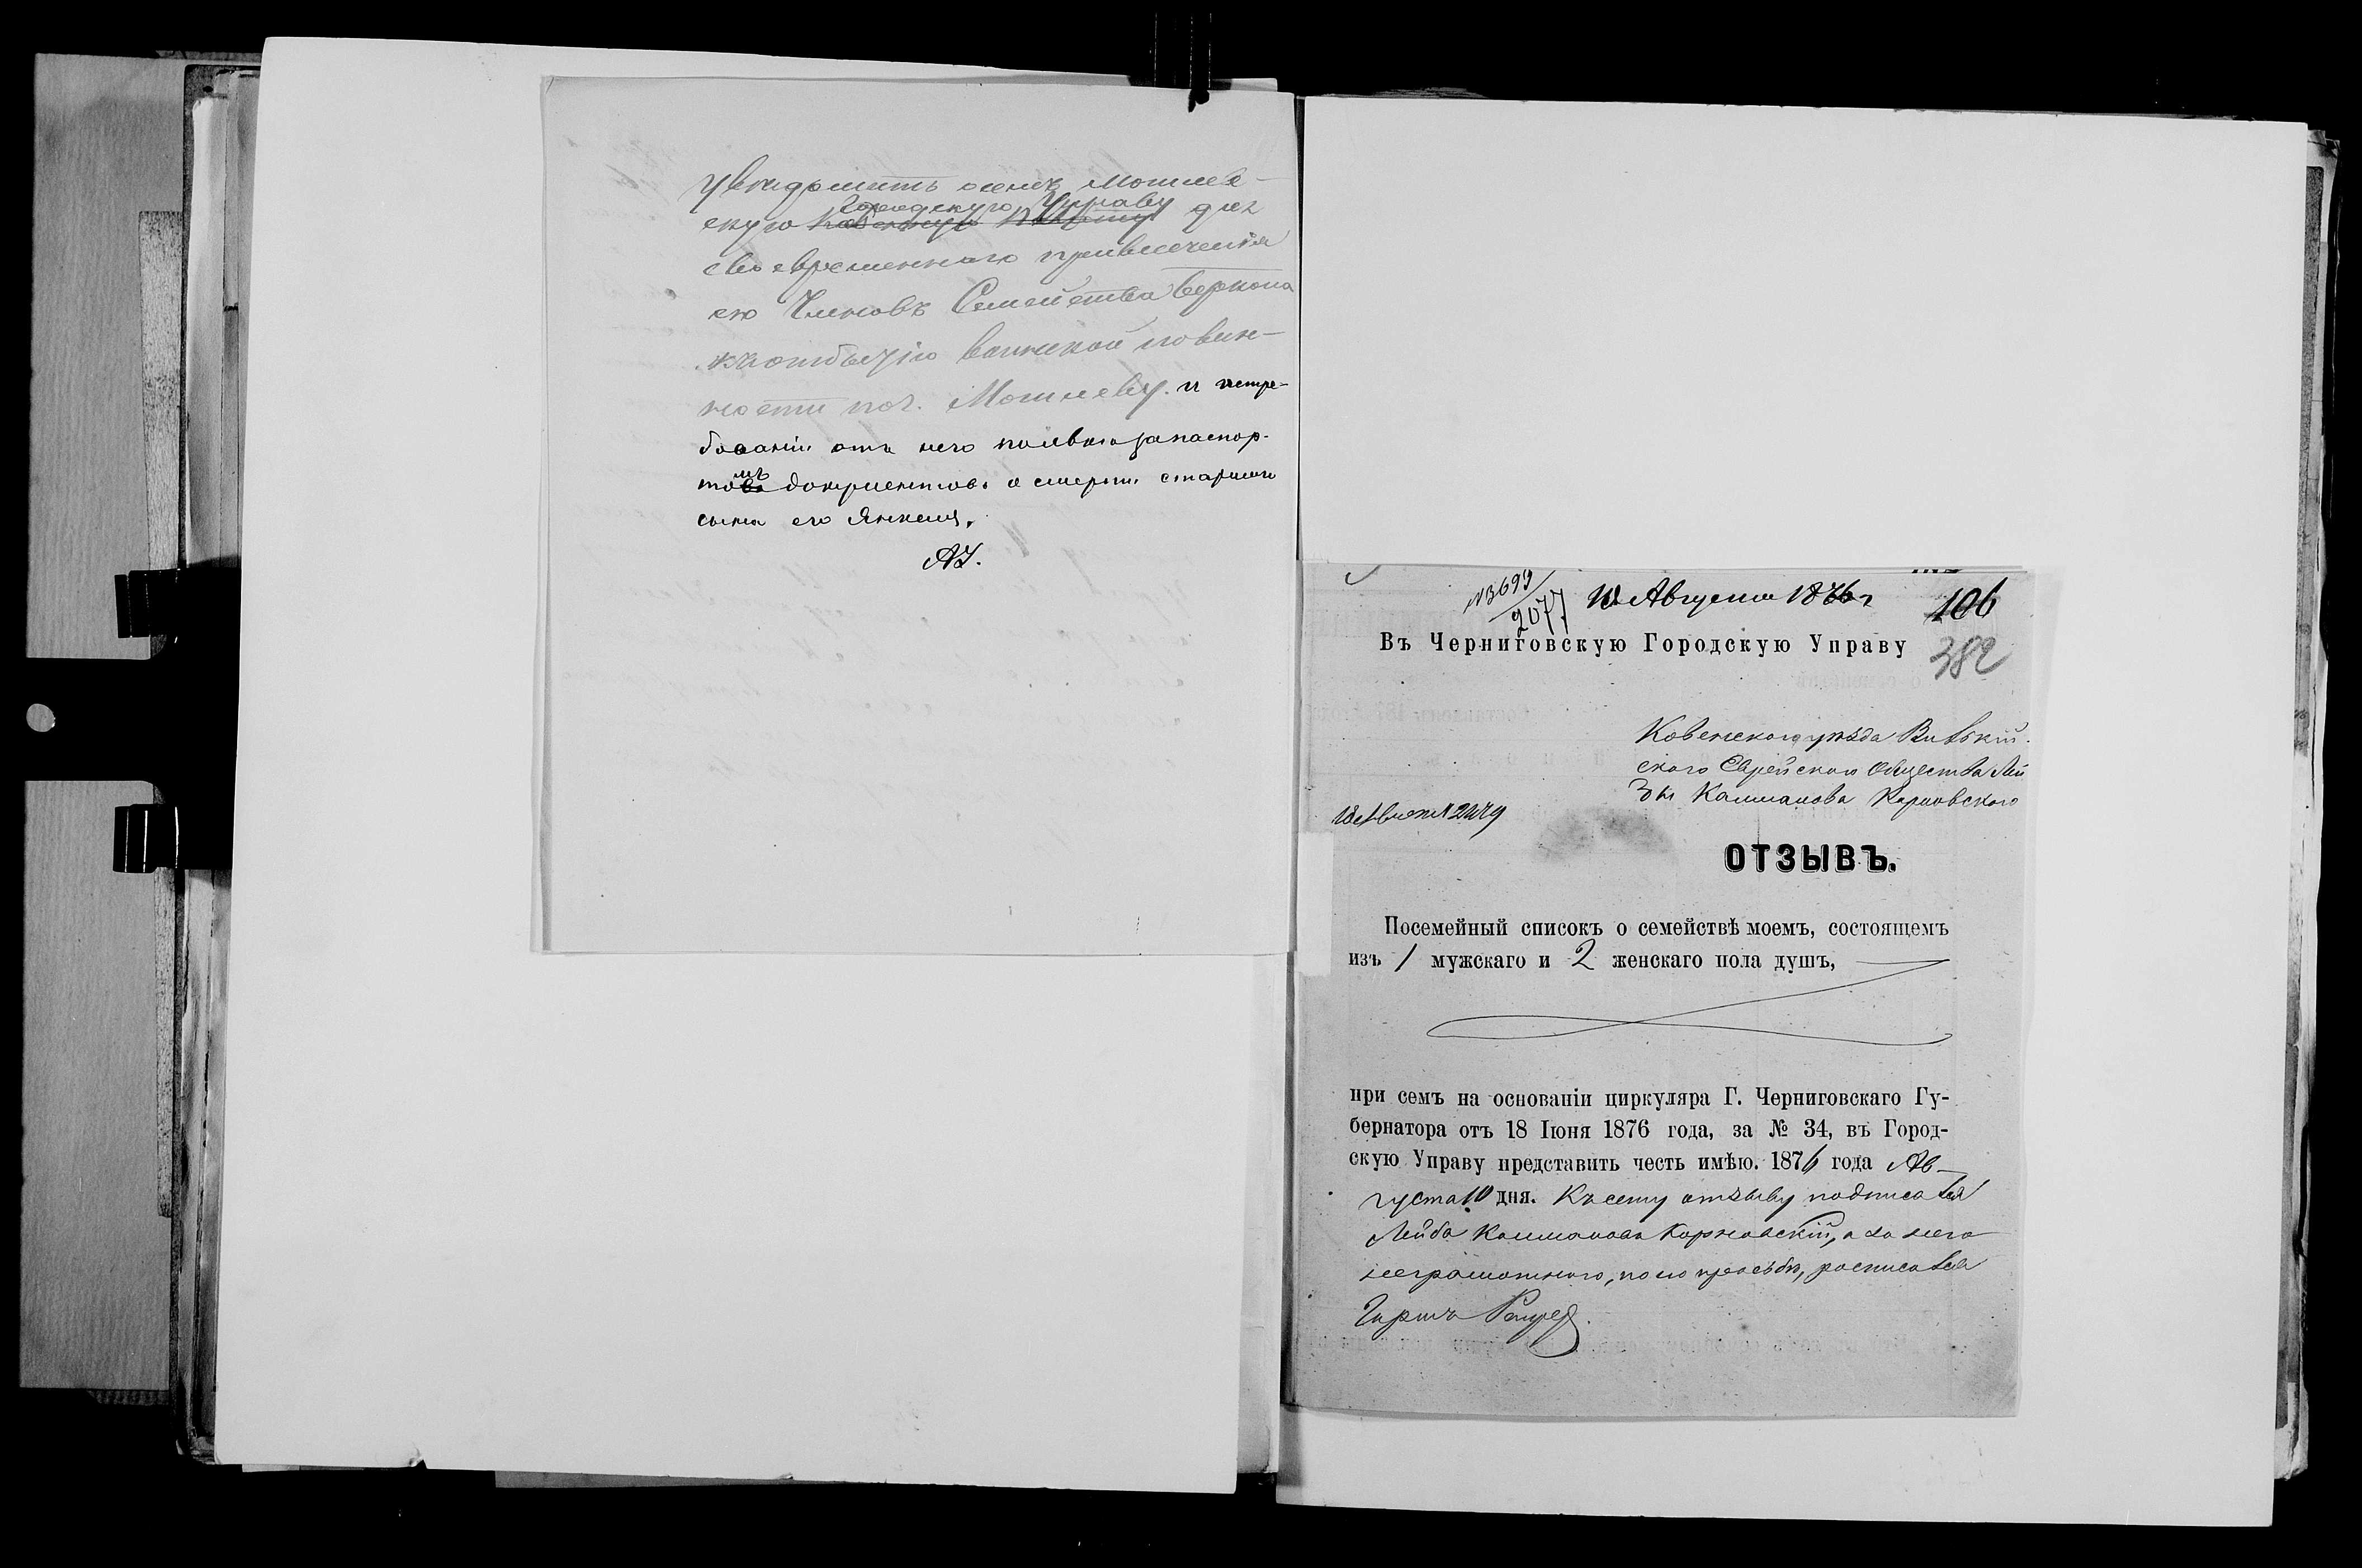 увѣдомить о семъ Могилев-
скую Городскую Управу для
своевременного привлеченія
ею Членовъ Семейства Беркона
къ отбытію воинской повин-
ности по г. Могилеву. и истре-
бованіи отъ него
томъ документовъ о смерти старшого
сына его Янкеля.
АЗ.
№3699/2077 10 Августа 1876 г 106
Въ Черниговскую Городскую Управу
382
Ковенского уѣзда Вильkій-
ского Еврейского Общества Лей
бы Калманова Карновского
18 Августа 2479
ОТЗЫВЪ.
Посемейный списокъ о семействѣ моемъ, состоящемъ
изъ 1 мужскаго и 2 женскаго пола душъ,
при семъ на основаніи циркуляра Г. Черниговскаго Гу-
бернатора отъ 18 Іюня 1876 года, за № 34, въ Город-
скую Управу представить честь имѣю. 1876 года Ав-
густа 10 дня. Къ сему отзыву подписался
Лейба Калмановъ Карновскій, а за него
неграмотного, по его просьбѣ, росписался
Гирша